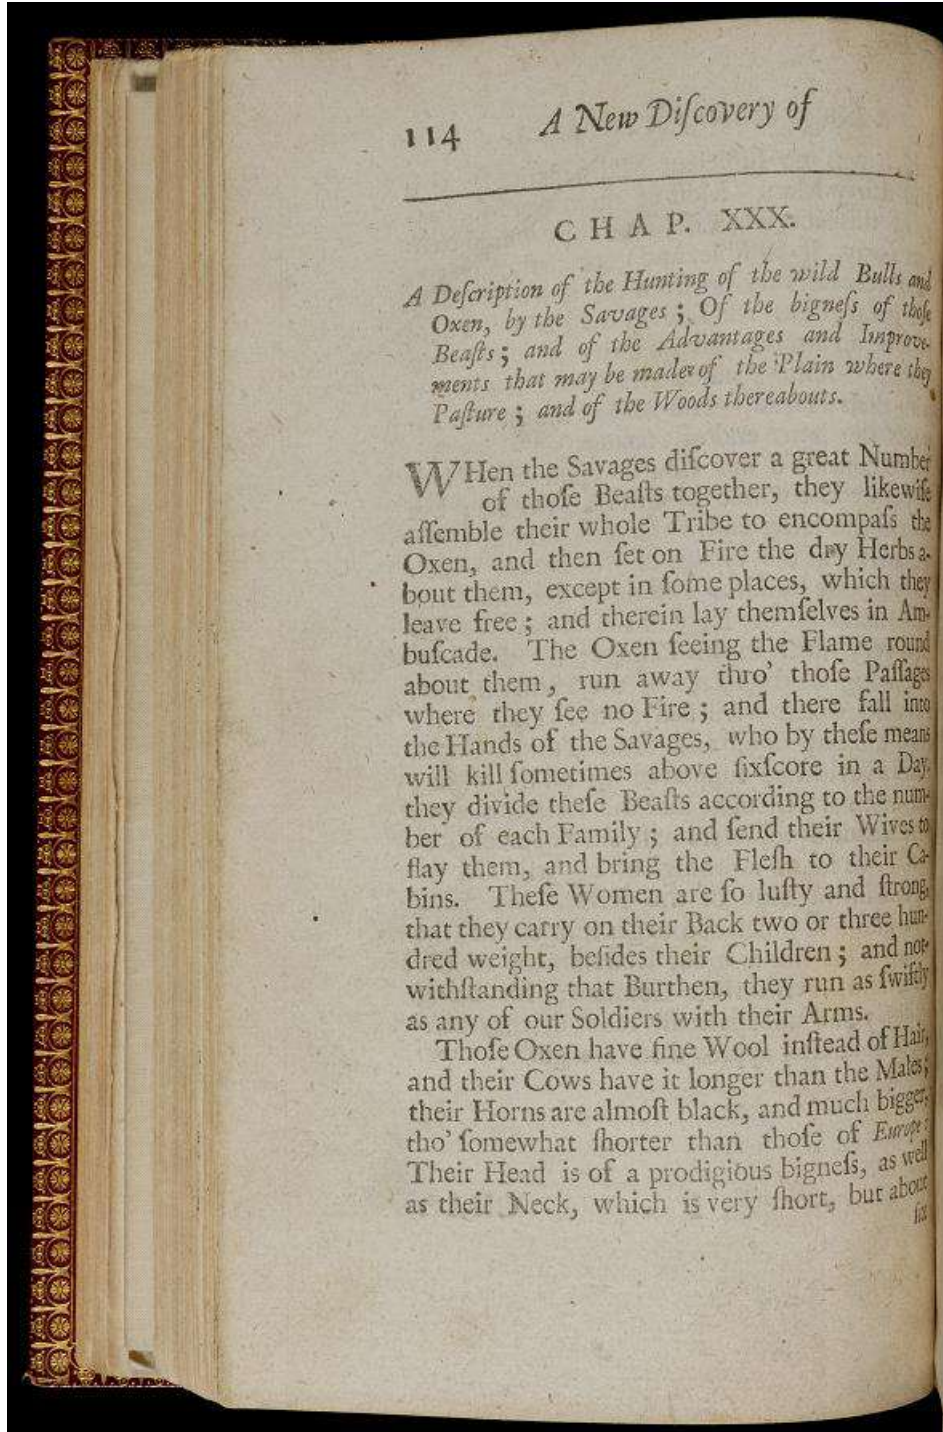 114 A New Diſcovery of
CHAP. XXX.
A Deſcription of the Hunting of the wild Bulls and
Oxen, by the Savages; Of the bigneſs of thoſe
Beaſts; and of the Advantages and Improve-
ments that may be made of the Plain where they
Paſture; and of the Woods thereabouts.
WHen the Savages diſcover a great Number
of thoſe Beaſts together, they likewiſe
aſſemble their whole Tribe to encompaſs the
Oxen, and then ſet on Fire the dry Herbs a-
bout them, except in ſome places, which they
leave free; and therein lay themſelves in Am-
buſcade. The Oxen ſeeing the Flame round
about them, run away thro' thoſe Paſſages
where they ſee no Fire; and there fall into
the Hands of the Savages, who by theſe means
will kill ſometimes above ſixſcore in a Day.
they divide theſe Beaſts according to the num-
ber of each Family; and ſend their Wives to
flay them, and bring the Fleſh to their Ca-
bins. Theſe Women are ſo luſty and ſtrong,
that they carry on their Back two or three hun-
dred weight, beſides their Children; and not-
withſtanding that Burthen, they run as ſwiftly
as any of our Soldiers with their Arms.
Thoſe Oxen have fine Wool inſtead of Hair,
and their Cows have it longer than the Males;
their Horns are almoſt black, and much bigger,
tho' ſomewhat ſhorter than thoſe of Europe:
Their Head is of a prodigious bigneſs, as well
as their Neck, which is very ſhort, but about
ſix